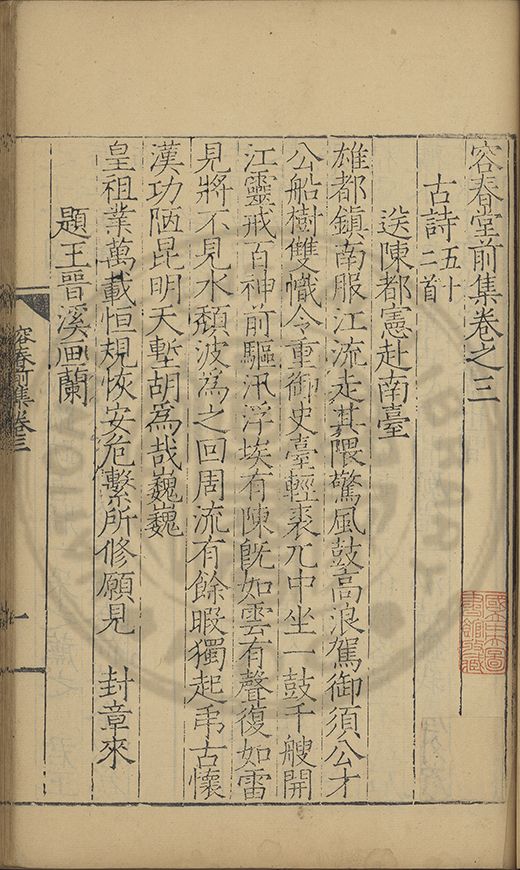 容春堂前集卷之三
古詩五十二首
送陳都憲赴南臺
雄都鎮南服江流走其隈驚風鼓高浪駕御須公才
公船樹雙幟令重御史臺輕裘兀中坐一鼓千艘開
江靈戒百神前驅汛浮埃有陳旣如雲有聲復如雷
見將不見水頽波爲之回周流有餘暇獨起弔古懷
漢功陋昆明天塹胡爲哉巍巍
皇祖業萬載恒規恢安危繫所修願見 封章來
題王晉溪画蘭
容春前集卷三
一